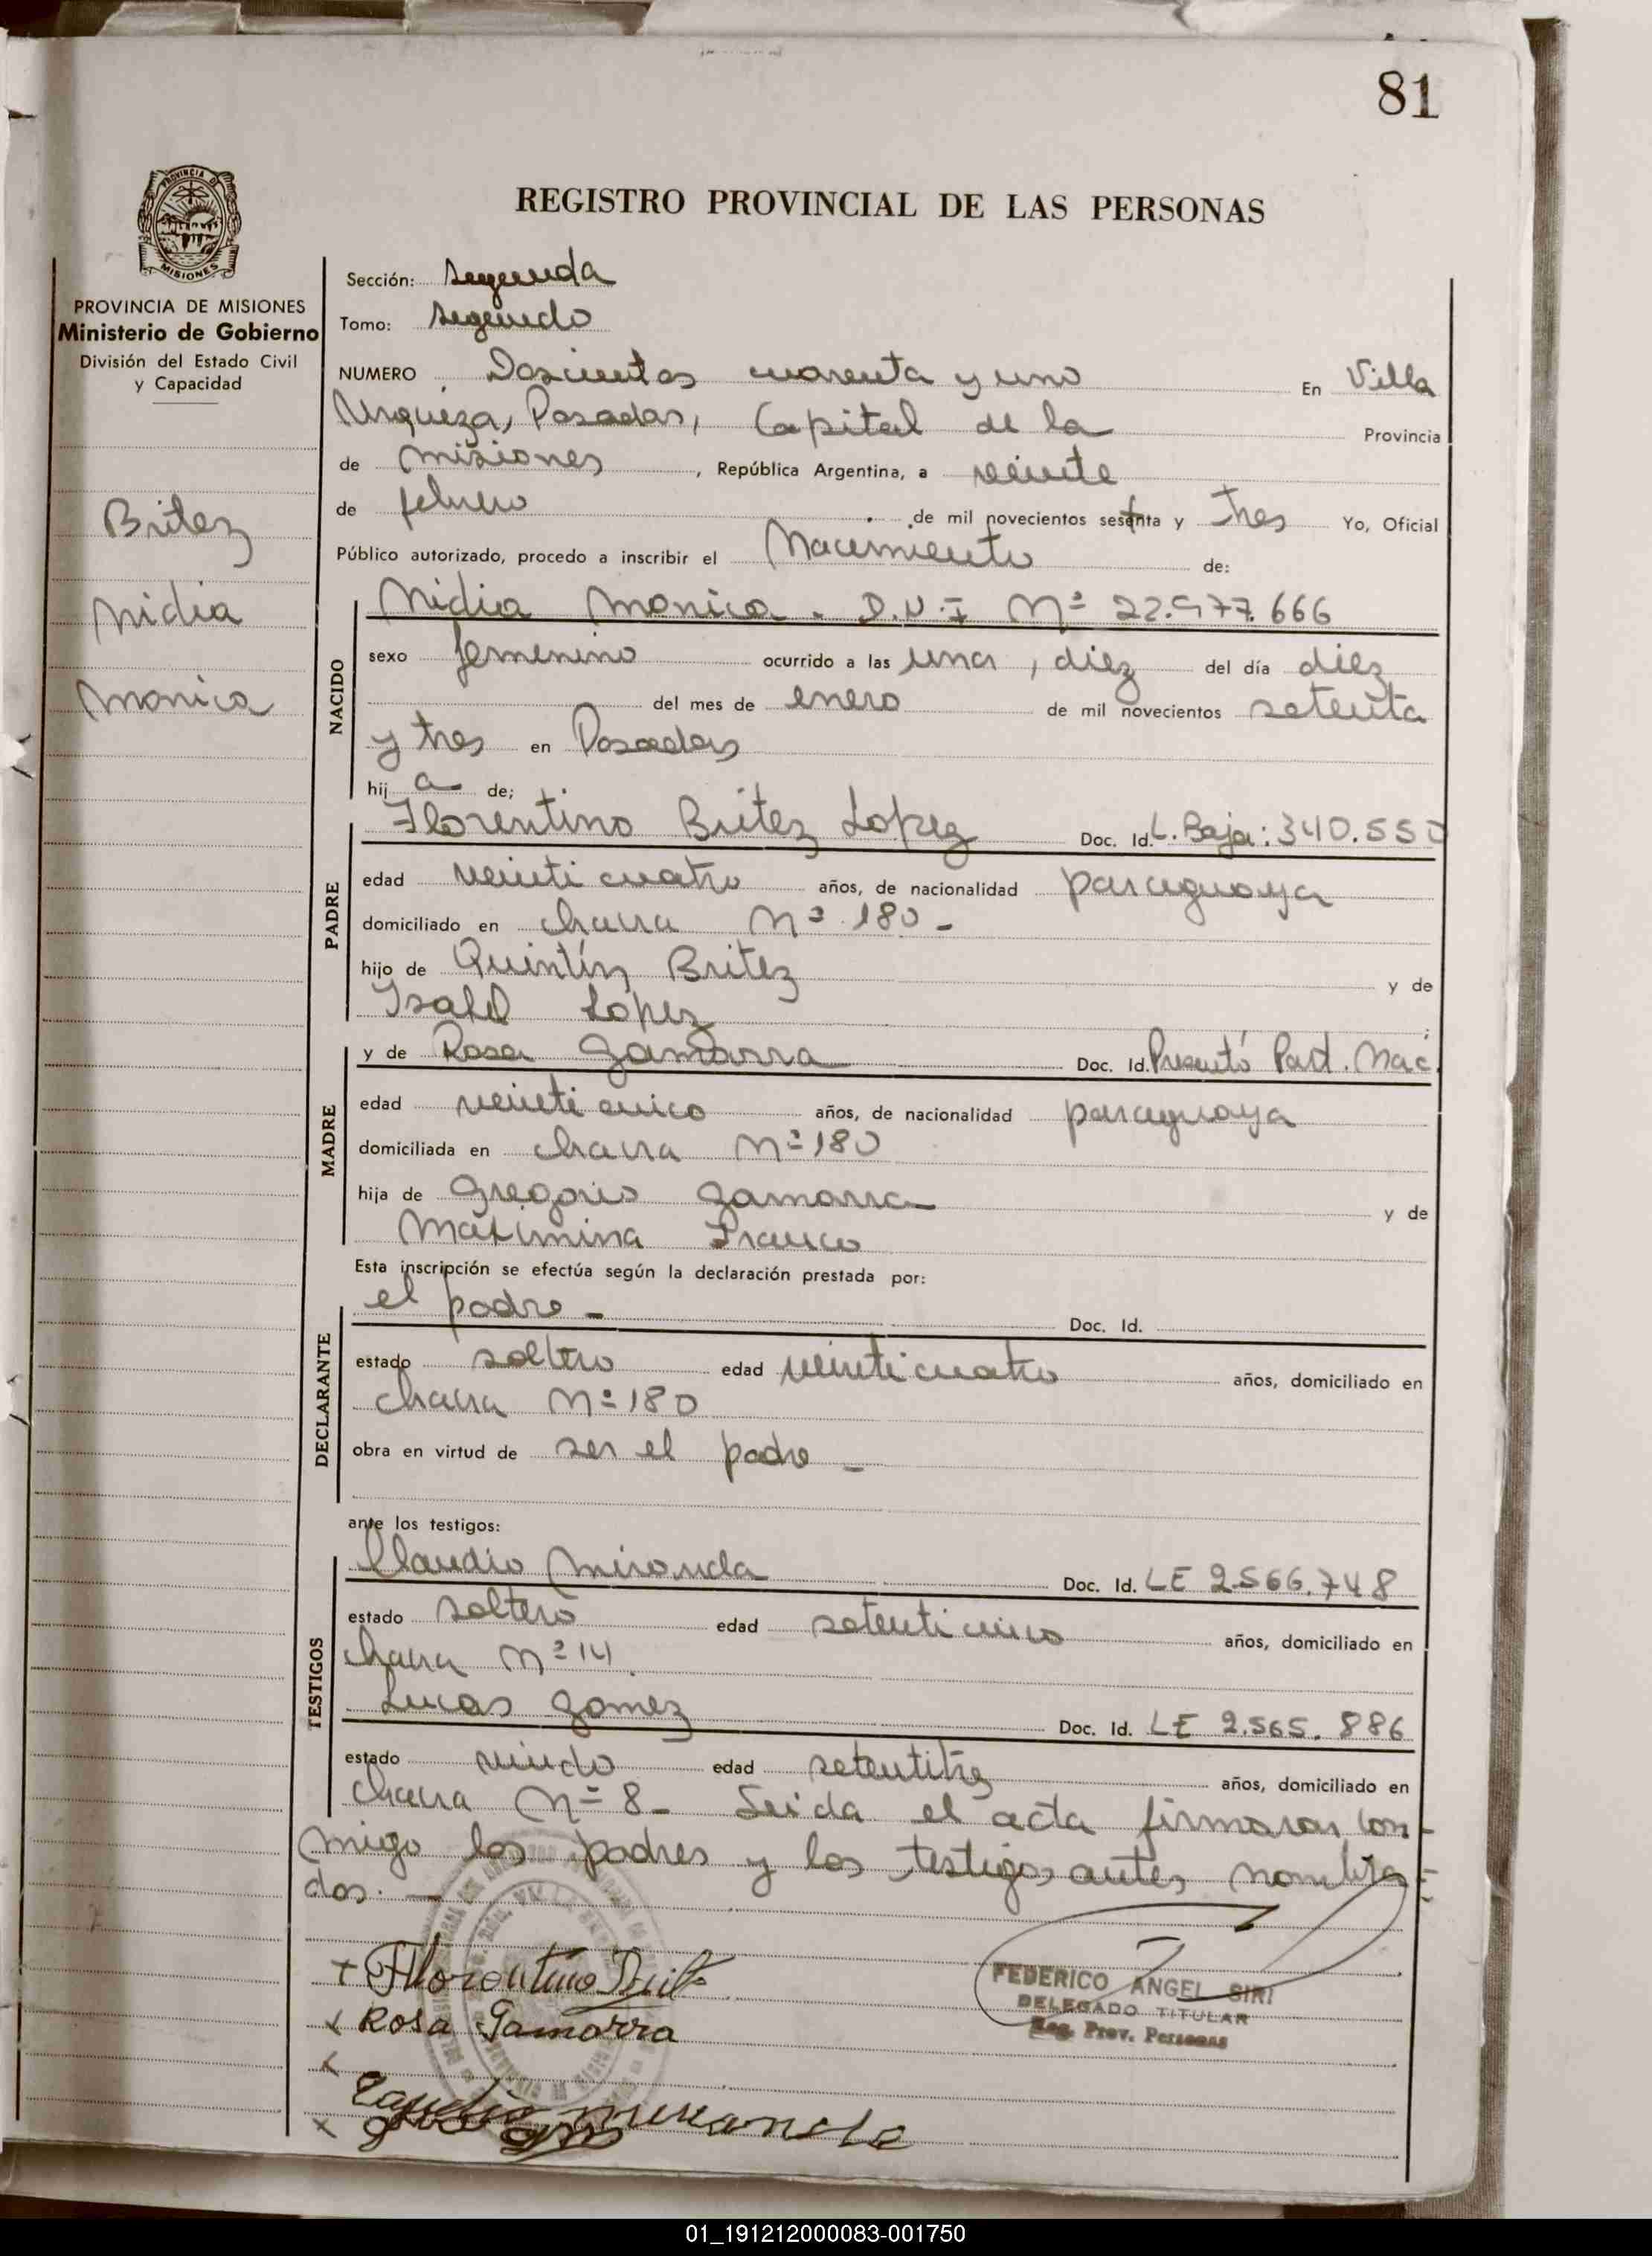 81
PROVINCIA DE
MISIONES
REGISTRO PROVINCIAL DE LAS PERSONAS
PROVINCIA DE MISIONES
Ministerio de Gobierno
División del Estado Civil
y Capacidad
Britez
Nidia
Monica
Sección: Segunda
Tomo: Segundo
NUMERO Doscientos cuarenta y uno En Villa
Urquiza, Posadas, Capital de la Provincia
de Misiones, República Argentina, a veinte
de febrero de mil novecientos setenta y tres Yo, Oficial
Público autorizado, procedo a inscribir el Nacimiento de:
NACIDO
Nidia Monica. D.N.I Nº 22.977.666
sexo femenino ocurrido a las una, diez del día diez
del mes de enero de mil novecientos setenta
y tres en Posadas
hij a de;
PADRE
Florentino Britez Lopez Doc. Id. L. Baja: 340.550
edad veinticuatro años, de nacionalidad paraguaya
domiciliado en chacra Nº 180-
hijo de Quintín Britez y de
Isabel Lopez
MADRE
y de Rosa Gamarra Doc. Id. Presentó Part. Nac.
edad veinticinco años, de nacionalidad paraguaya
domiciliada en chacra Nº 180
hija de Gregorio Gamarra y de
Maximina Franco
Esta inscripción se efectúa según la declaración prestada por:
DECLARANTE
el padre - Doc. Id.
estado soltero edad veinticuatro años, domiciliado en
chacra Nº 180
obra en virtud de ser el padre -
ante los testigos:
TESTIGOS
Claudio Miranda Doc. Id. LE 2.566.748
estado soltero edad setenticinco años, domiciliado en
chacra Nº 14.
Lucas Gomez Doc. Id. LE 2.565.886
estado viudo edad setentitres años, domiciliado en
chacra Nº 8- Leida el acta firmaron con-
migo los padres y los testigos antes nombra=
dos. —
x Florentino Brit
FEDERICO ANGEL SIRI
DELEGADO TITULAR
Reg. Prov. Personas
x Rosa Gamarra
x
x
01_191212000083-001750